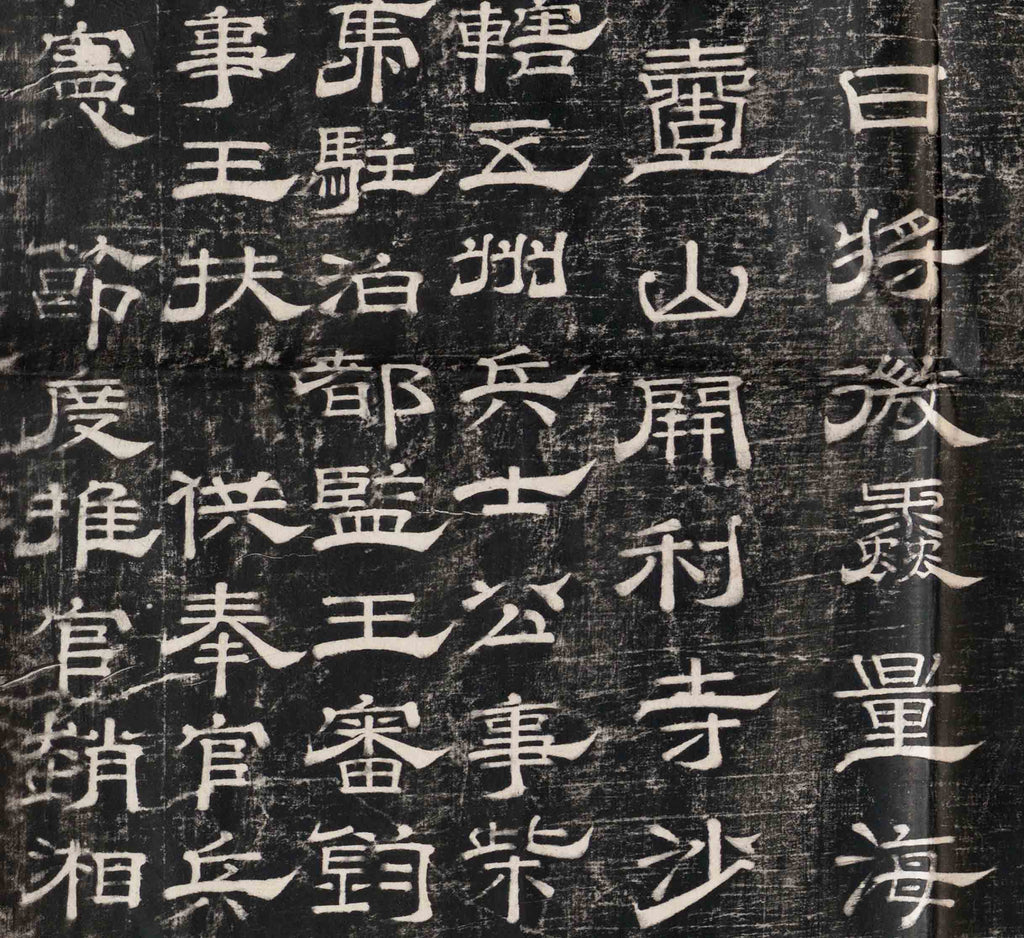 目將微蠡量海
壺山開利寺沙
轄五州兵士公事柴
馬駐泊都監王審鈞
事王扶 供奉官兵
憲 節度推官趙湘